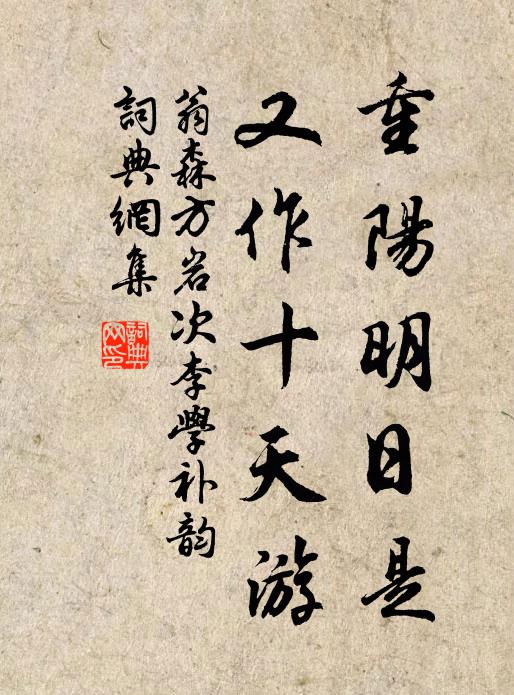 重陽明日是
又作十天游
翁森方岩次李學补韵
詞典網集
詞典網印